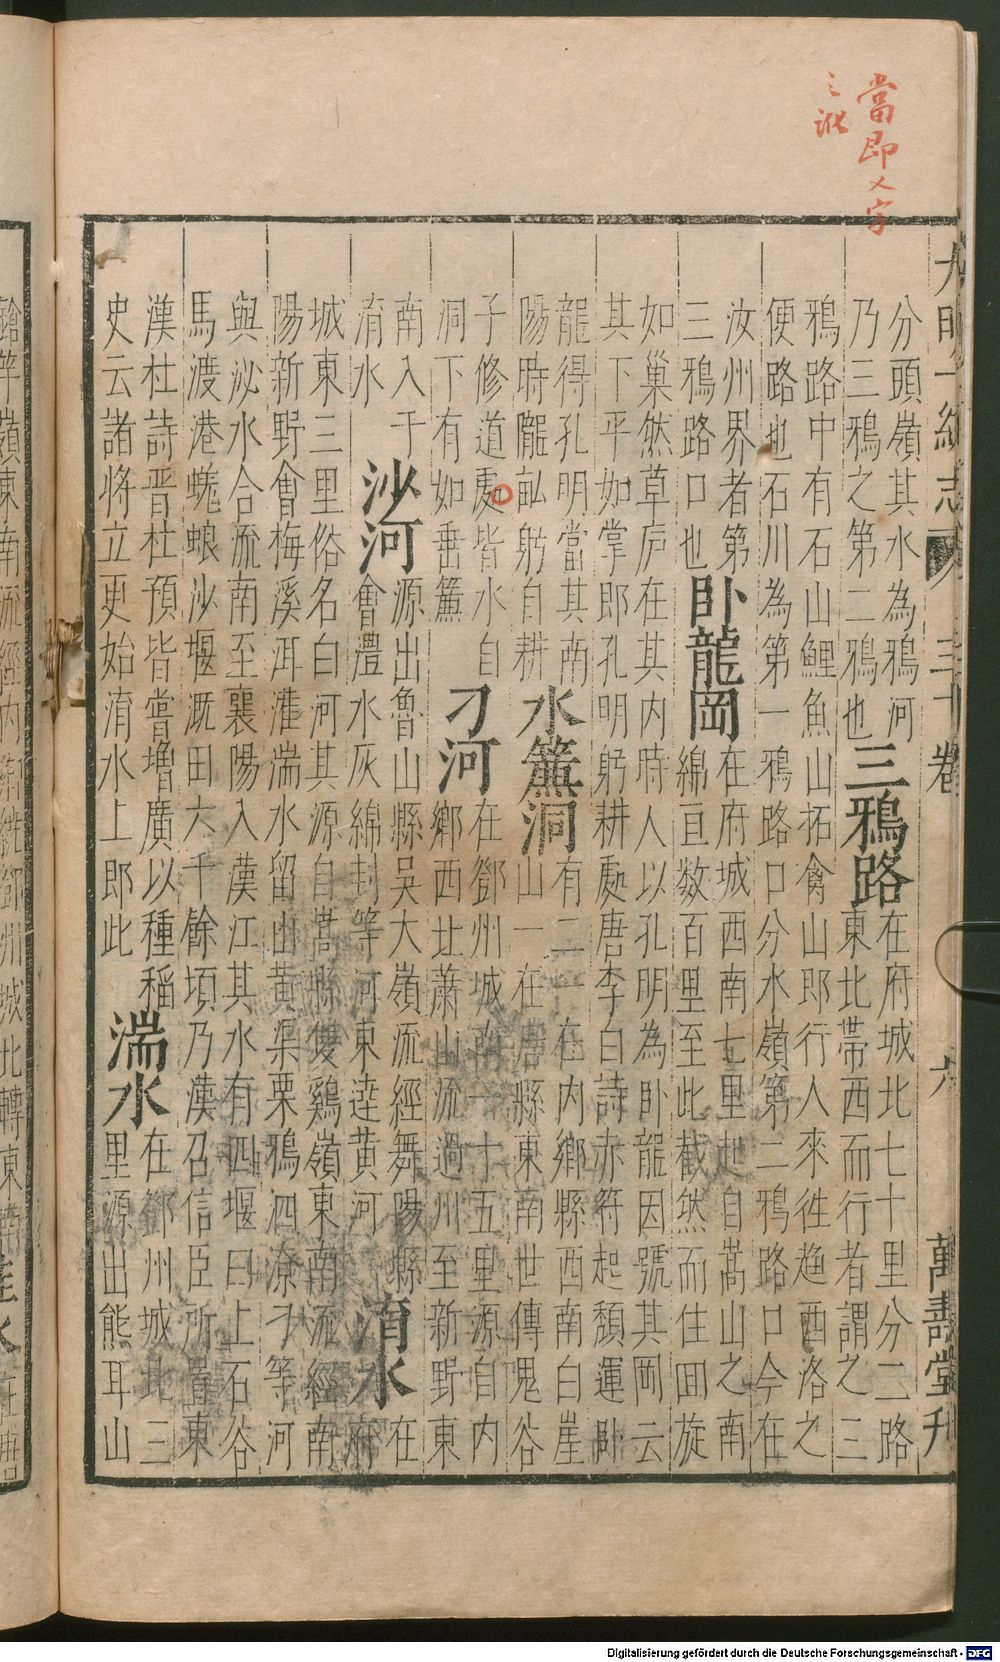 當即乂字
之訛
大明一統志 三十卷 六 萬壽堂刋
分頭嶺其水為鴉河
乃三鴉之第二鴉也
三鴉路
在府城北七十里分二路
東北帶西而行者謂之三
鴉路中有石山鯉魚山拓禽山即行人來徃趨西洛之
便路也石川為第一鴉路口分水嶺第二鴉路口今在
汝州界者第
三鴉路口也
卧龍岡
在府城西南七里起自嵩山之南
綿亘数百里至此截然而住回旋
如巢然草庐在其内時人以孔明為卧龍因號其岡云
其下平如掌即孔明躬耕處唐李白詩赤符起頹運卧
龍得孔明當其南
陽時隴畝躬自耕
水簾洞
有二一在内鄉縣西南白崖
山一在唐縣東南世傳鬼谷
子修道處皆水自
洞下有如垂簾
刁河
在鄧州城南一十五里源自内
鄉西北蕭山流過州至新野東
南入于
淯水
沙河
源出魯山縣吴大嶺流經舞陽縣
會澧水灰綿封等河東達黄河
淯水
在
府
城東三里俗名白河其源自嵩縣雙鷄嶺東南流經南
陽新野會梅溪洱灌湍水留山黄渠栗鴉泗潦刁等河
與泌水合流南至襄陽入漢江其水有四堰曰上石谷
馬渡港蜣蜋沙堰溉田六千餘頃乃漢召信臣所置東
漢杜詩晋杜預皆嘗増廣以種稲
史云諸將立更始淯水上即此
湍水
在鄧州城北三
里源出熊耳山
嶺東南流經内鄉 鄧州城北轉東南
Digitalisierung gefördert durch die Deutsche Forschungsgemeinschaft - DFG